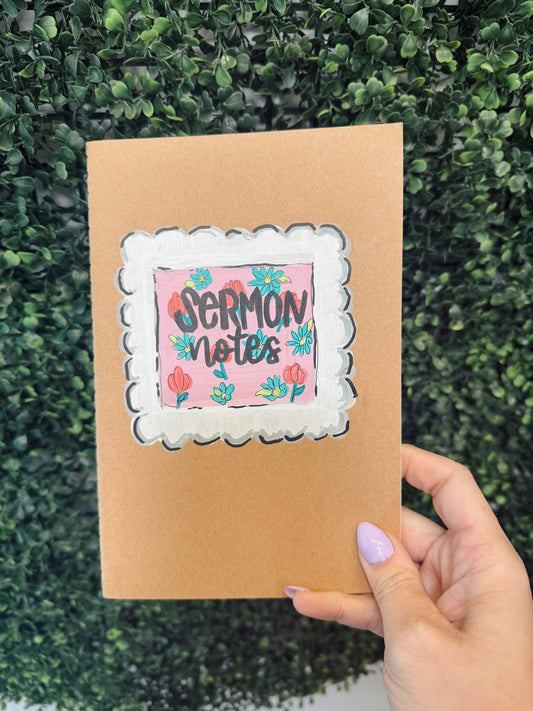 SERMON
notes